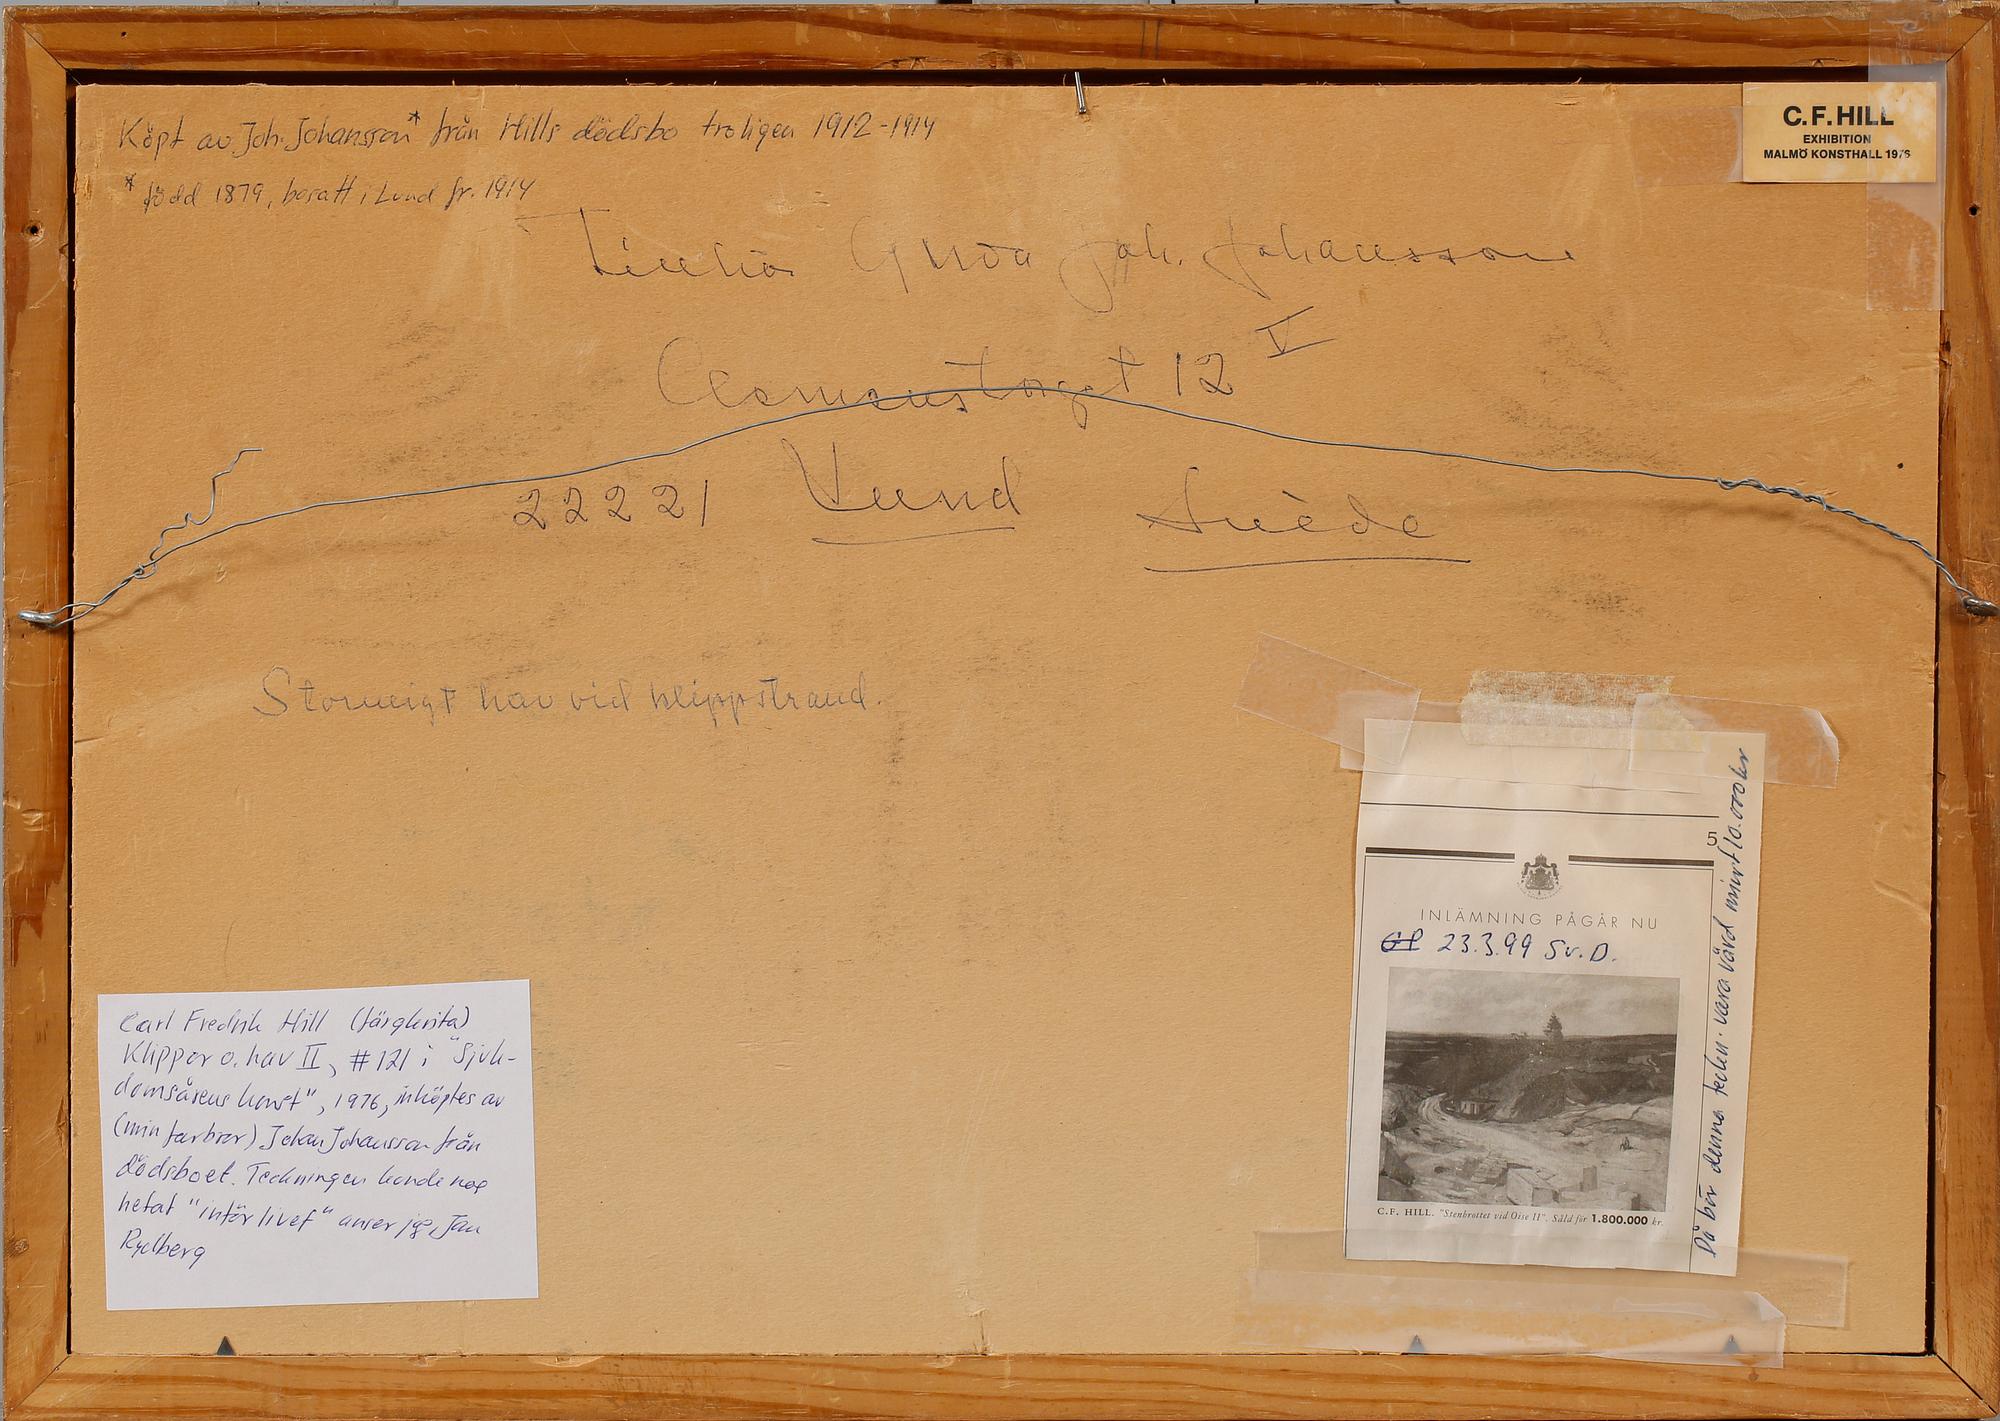 Köpt av Joh. Johansson* från Hills dödsbo troligen 1912-1914
* född 1879, bosatt i Lund fr. 1914
C.F. HILL
EXHIBITION
MALMÖ KONSTHALL 1976
Joh. Johansson
Clemenstorget 12 V
22221 Lund Suède
Stormigt hav vid klippstrand.
5
INLÄMNING PÅGÅR NU
GP 23.3.99 Sv.D.
C.F. HILL. "Stenbrottet vid Oise II". Såld för 1.800.000 kr.
Då bör denna teckn. vara värd minst 10.000 kr
Carl Fredrik Hill (färgkrita)
Klippor o. hav II, #121 i "Sjuk-
domsårens konst", 1976, inköptes av
(min farbror) Johan Johansson från
dödsboet. Teckningen kunde nog
hetat "inför livet" anser jag, Jan
Rydberg